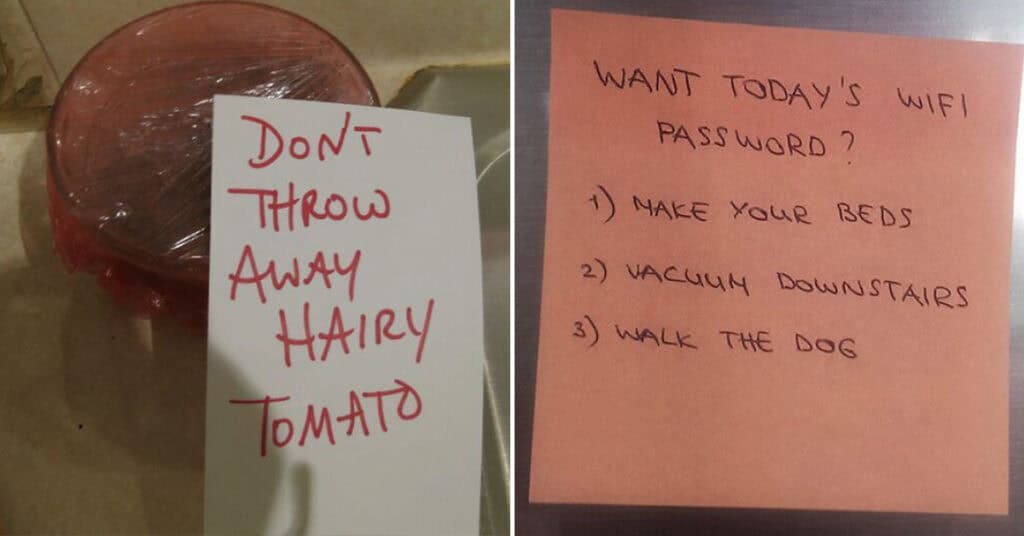 DON'T
THROW
AWAY
HAIRY
TOMATO
WANT TODAY'S WIFI
PASSWORD?
1) MAKE YOUR BEDS
2) VACUUM DOWNSTAIRS
3) WALK THE DOG